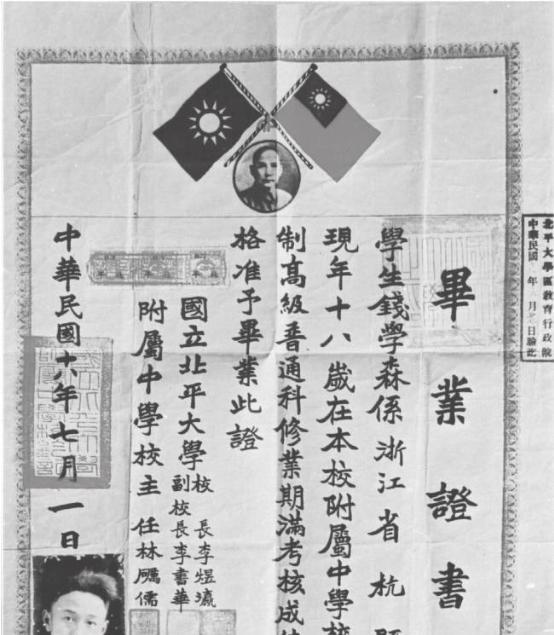 畢業證書
學生錢學森係浙江省杭
現年十八歲在本校附屬中學校
制高級普通科修業期滿考核成
格准予畢業此證
國立北平大學校長李煜瀛
副校長李書華
附屬中學校主任林礪儒
中華民國十八年七月一日
北平大學區教育行政院
中華民國 年 月 日驗訖